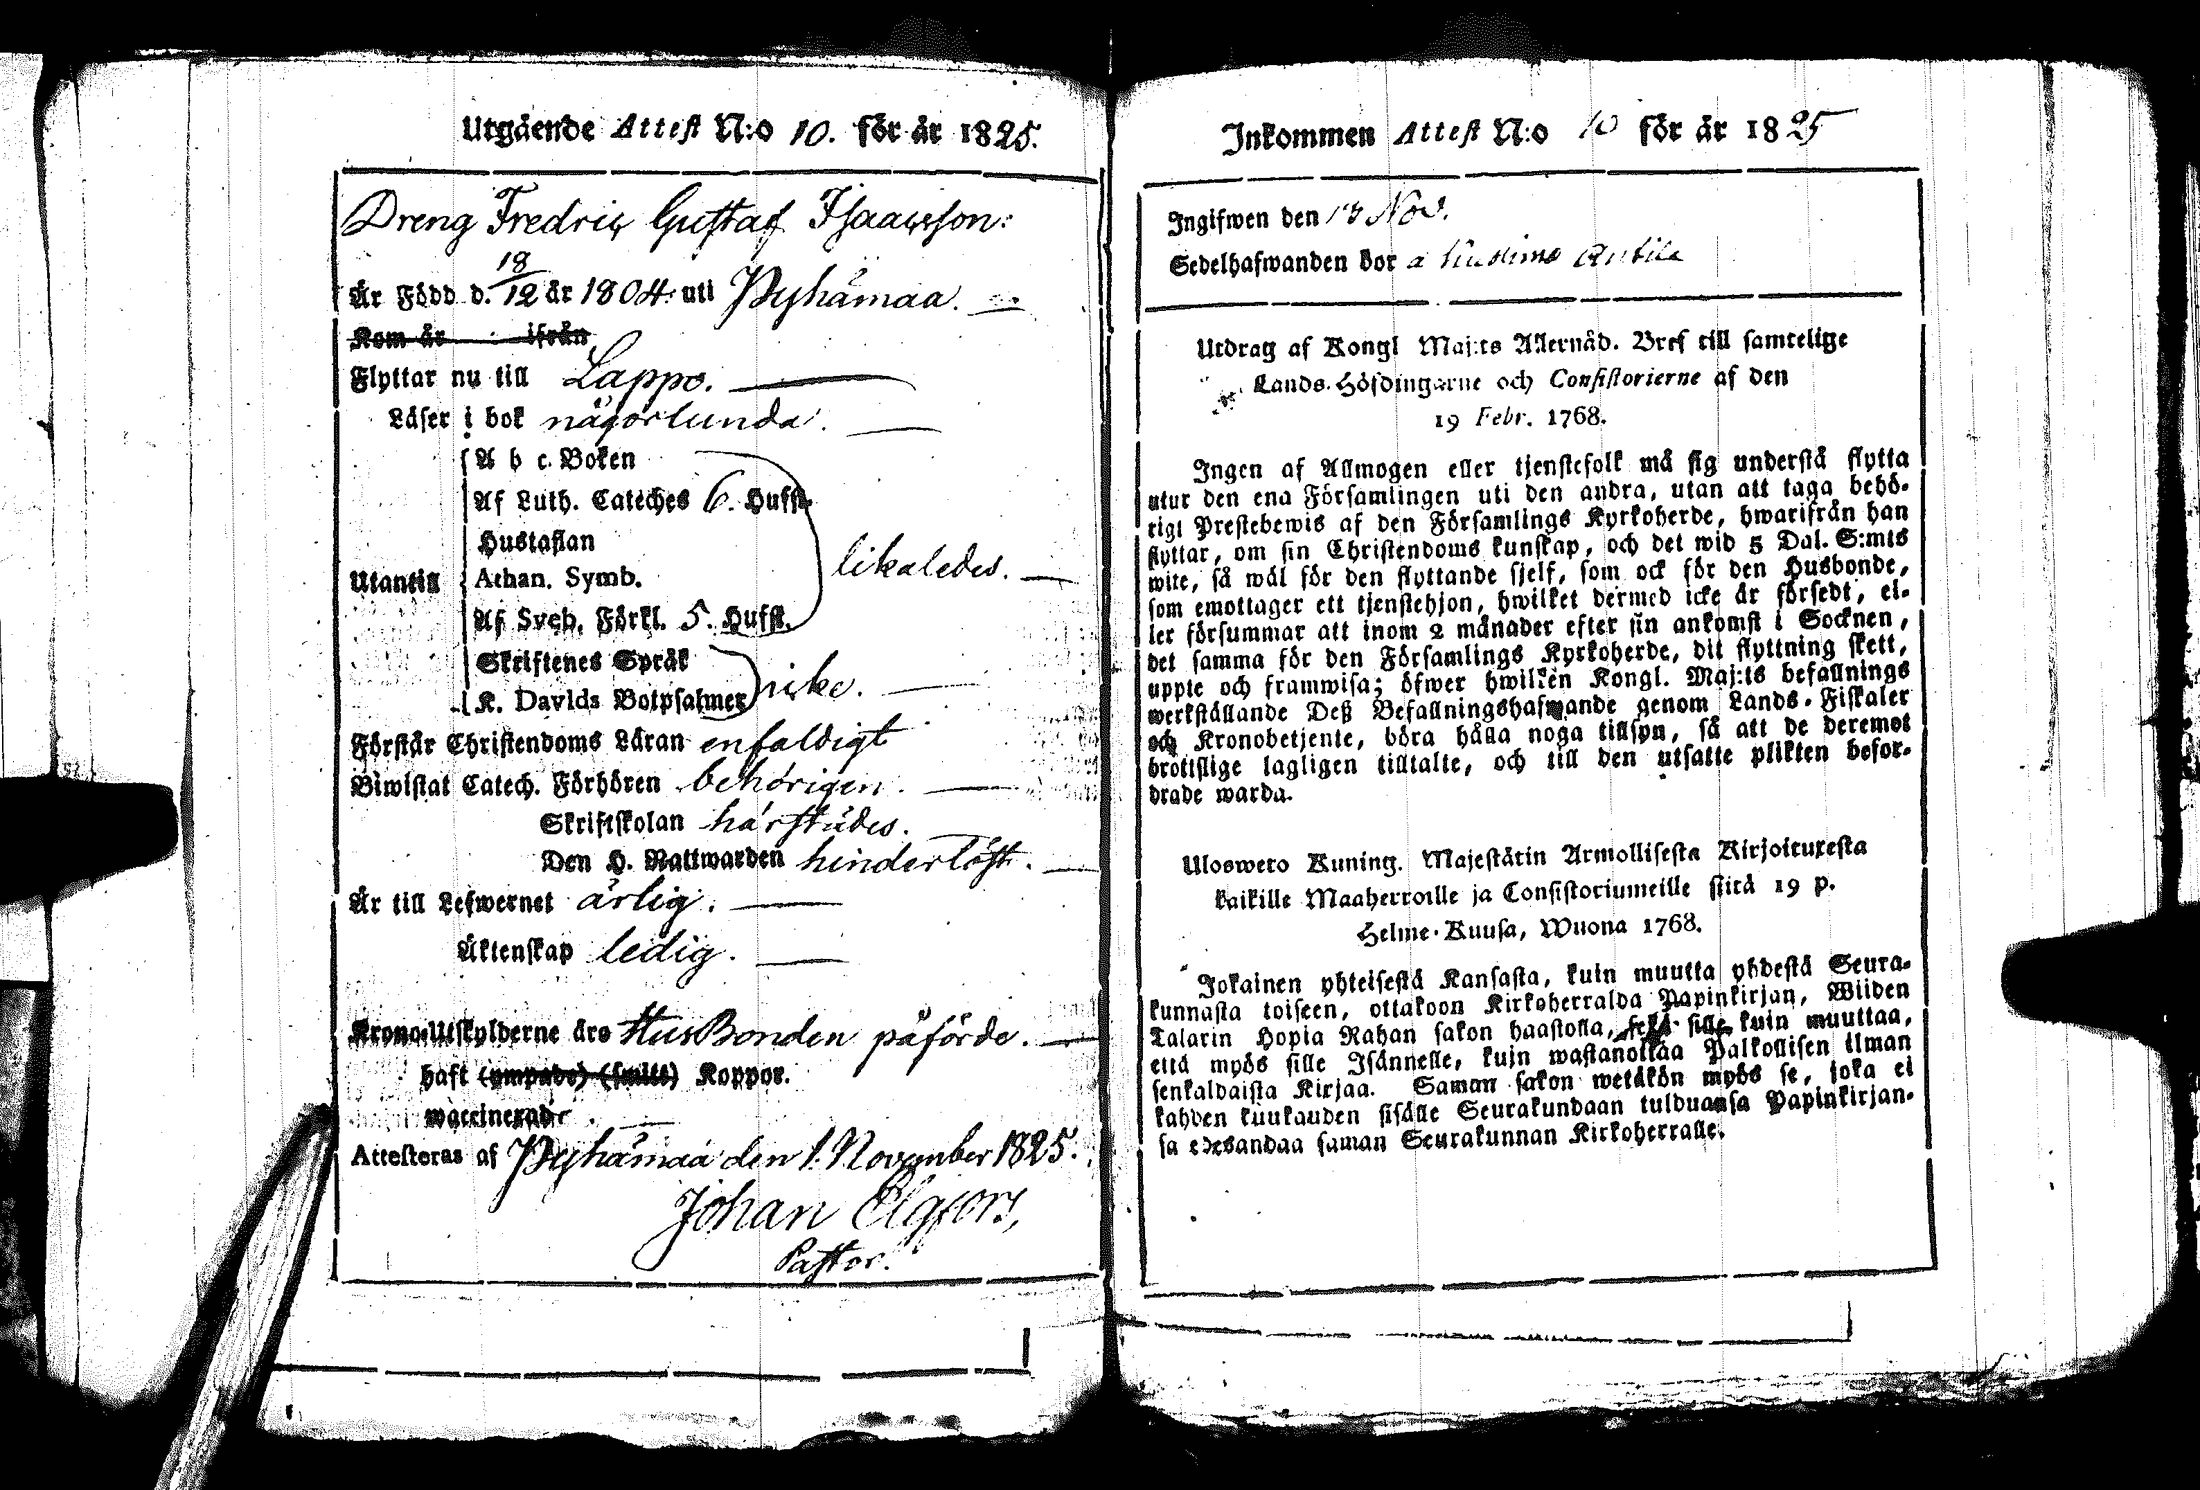 Utgående Attest N:o 10. för år 1825.
Dreng Fredric Gustaf Isaacsson:
Är Född d. 18/12 år 1804 uti Pyhämaa.
Kom år ifrån
Flyttar nu till Lappo.
Läser i bok någorlunda.
A b c. Boken
Af Luth. Cateches 6. Hufst.
Hustaflan
Utantill Athan. Symb. likaledes.
Af Sveb. Förkl. 5. Hufst.
Skriftenes Språk
K. Davids Botpsalmer icke.
Förstår Christendoms Läran enfaldigt
Biwistat Catech. Förhören behörigen.
Skriftskolan härstädes.
Den H. Nattwarden hinderlöst.
Är till Lefwernet ärlig.
Äktenskap ledig.
Krono-Utskylderne äro HusBonden påförde.
haft (ympade) (smitt) Koppor.
waccinerad
Attesteras af Pyhämaa den 1. November 1825.
Johan Elgfors,
Pastor.
Inkommen Attest N:o 10 för år 1825
Ingifwen den Nov.
Sedelhafwanden bor å
Utdrag af Kongl Maj:ts Allernåd. Bref till samtelige
Lands-Höfdingarne och Consistorierne af den
19 Febr. 1768.
Ingen af Allmogen eller tjenstefolk må sig understå flytta
utur den ena Församlingen uti den andra, utan att taga behö-
rigt Prestebewis af den Församlings Kyrkoherde, hwarifrån han
flyttar, om sin Christendoms kunskap, och det wid 5 Dal. S:mts
wite, så wäl för den flyttande sjelf, som ock för den Husbonde,
som emottager ett tjenstehjon, hwilket dermed icke är försedt, el-
ler försummar att inom 2 månader efter sin ankomst i Socknen,
det samma för den Församlings Kyrkoherde, dit flyttning skett,
uppte och framwisa; öfwer hwilken Kongl. Maj:ts befallnings
werkställande Deß Befallningshafwande genom Lands-Fiskaler
och Kronobetjente, böra hålla noga tillsyn, så att de deremot
brottslige lagligen tilltalte, och till den utsatte plikten befor-
drade warda.
Ulosweto Kuning. Majestätin Armollisesta Kirjoituxesta
kaikille Maaherroille ja Consistoriumeille siitä 19 p.
Helme-Kuusa, Wuona 1768.
Jokainen yhteisestä Kansasta, kuin muutta yhdestä Seura-
kunnasta toiseen, ottakoon Kirkoherralda Papinkirjan, Wiiden
Talarin Hopia Rahan sakon haastolla, sekä sille kuin muuttaa,
että myös sille Isännelle, kuin wastanottaa Palkollisen ilman
senkaldaista Kirjaa. Saman sakon wetäkön myös se, joka ei
kahden kuukauden sisälle Seurakundaan tulduansa Papinkirjan-
sa edesandaa saman Seurakunnan Kirkoherralle.